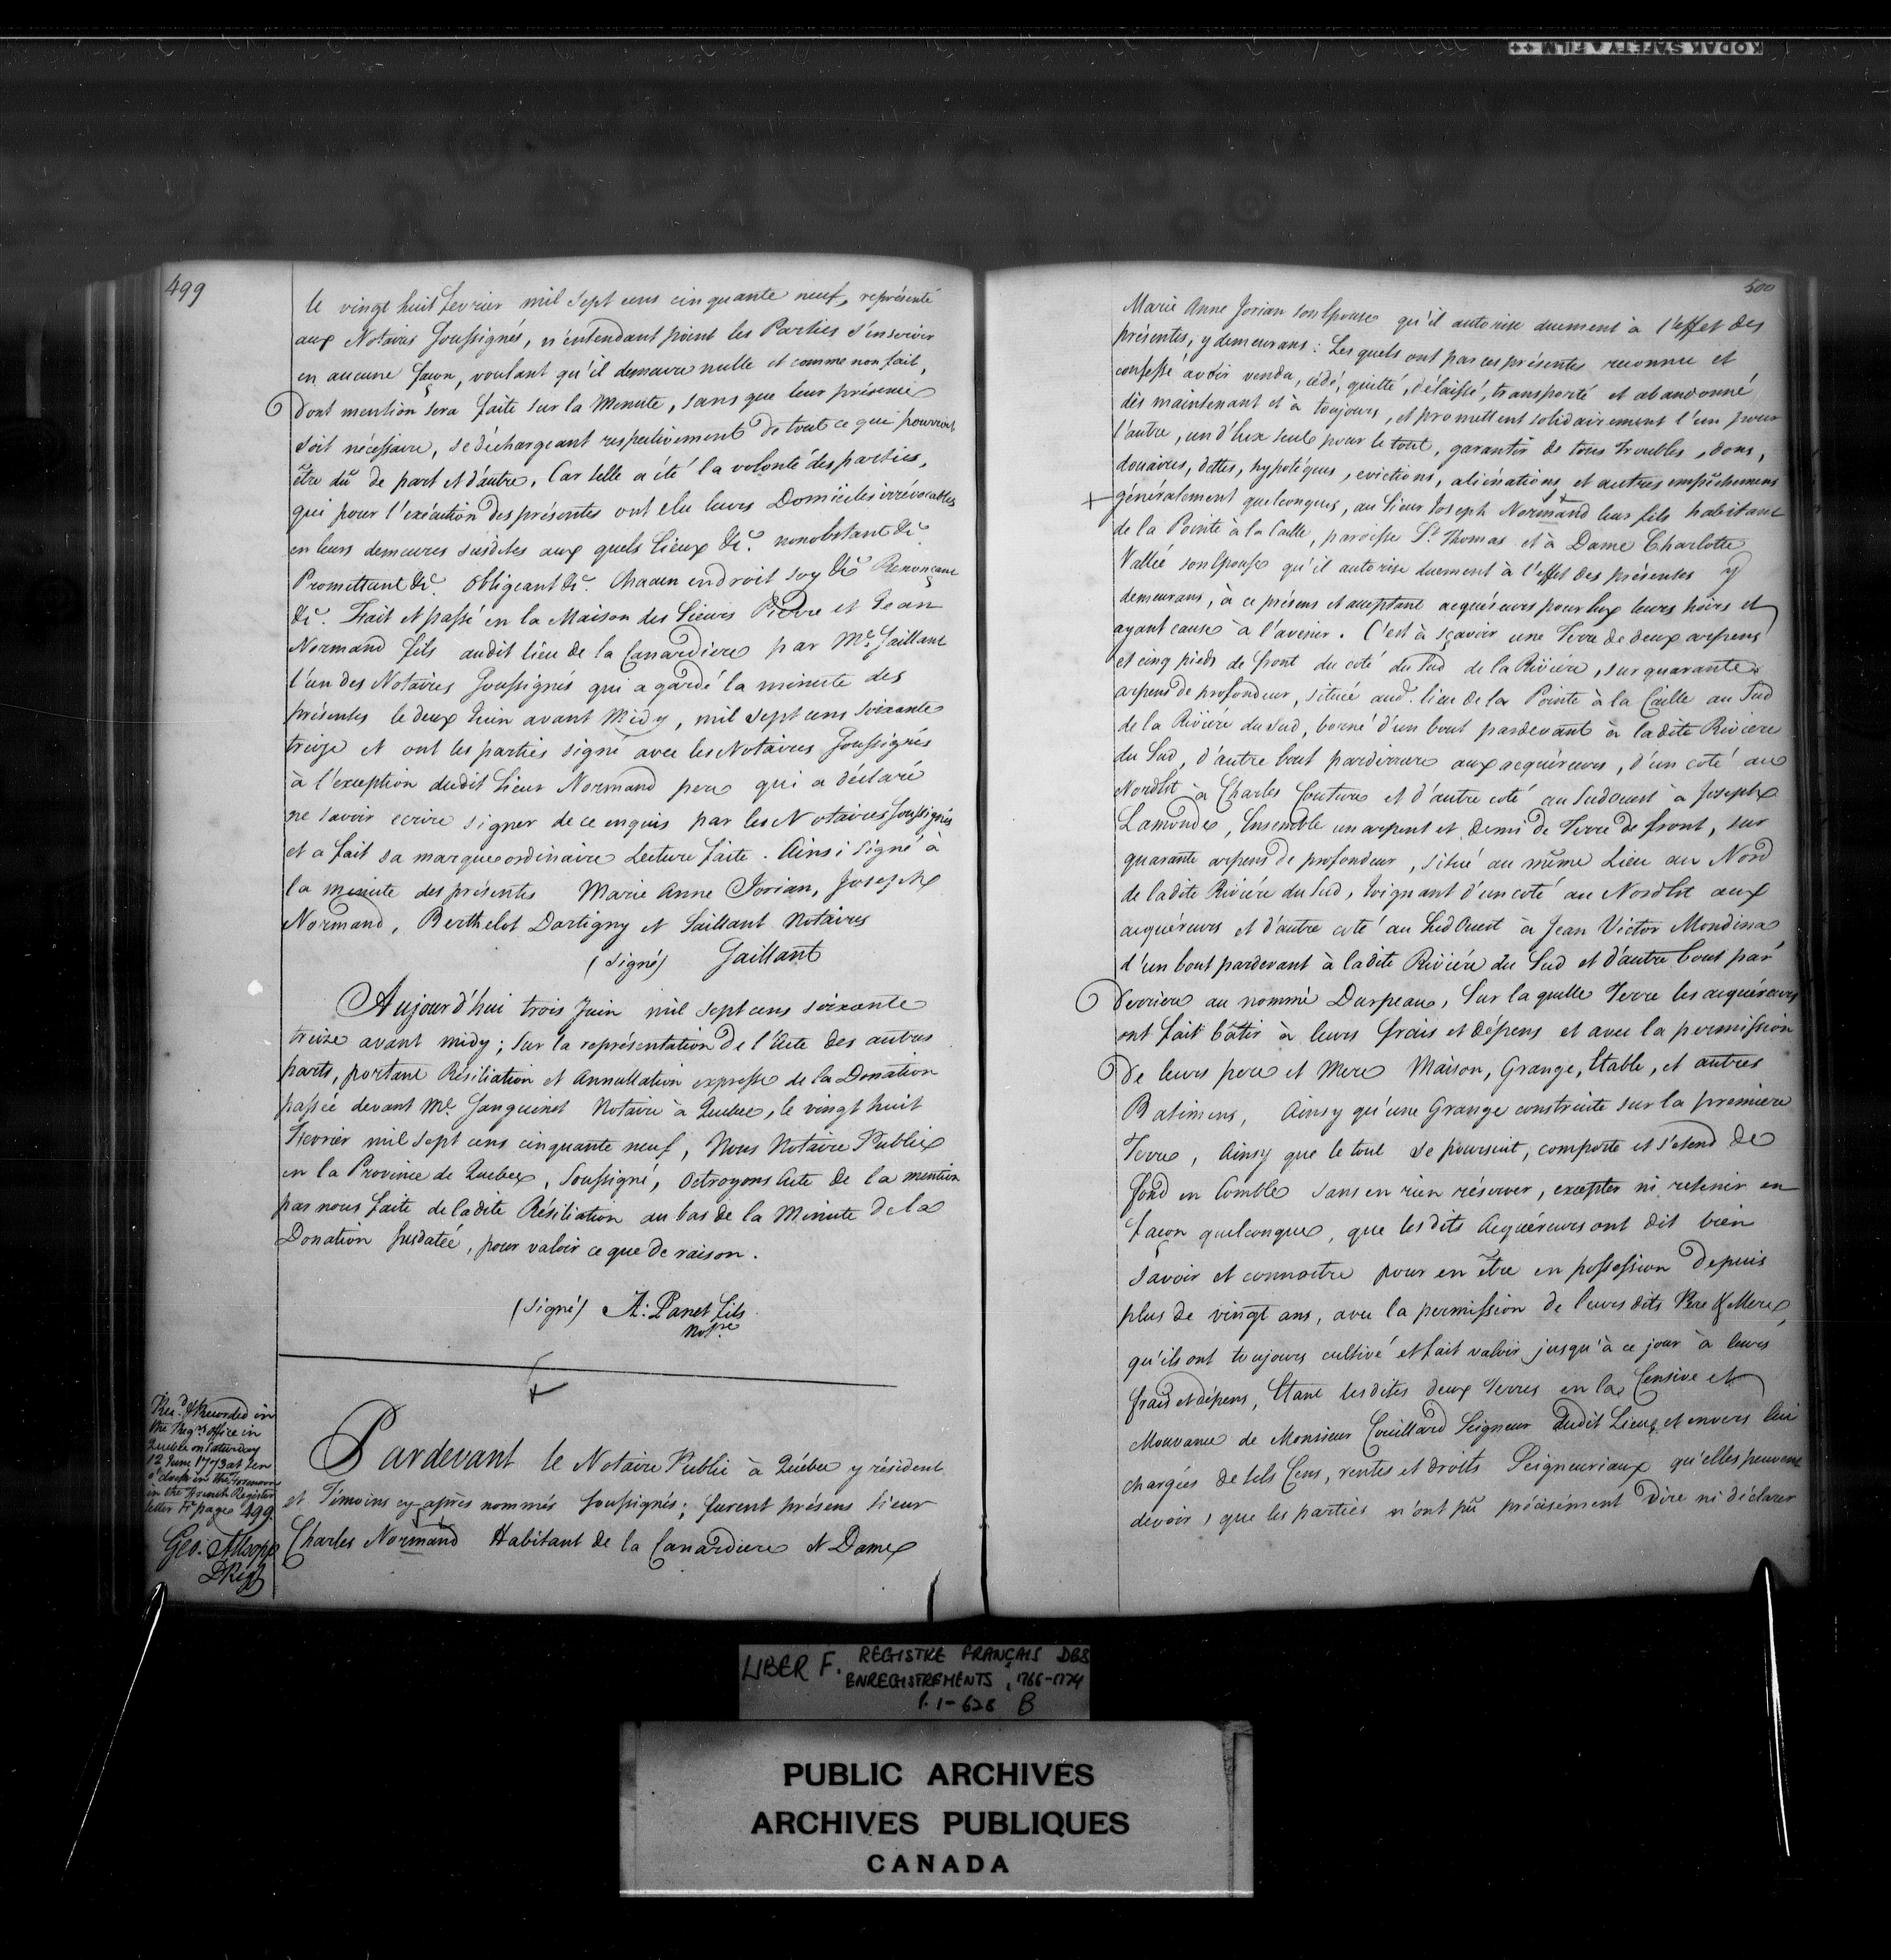 KODAK SAFETY FILM ++
499
le vingt huit fevrier mil sept cens cinquante neuf, représenté
aux Notaires Soussignés, n'entendant point les Parties s'enservir
en aucune façon, voulant qu'il demeure nulle et comme non fait,
dont mention sera faite sur la Minute, sans que leur présence
soit nécessaire, se déchargeant respectivement de tout ce qui pourroit
être dû de part et d'autre. Car telle a été la volonté des parties,
qui pour l'exécution des présentes ont elu leurs Domiciles irrévocables
en leurs demeures susdites aux quels Lieux &c. nonobstant &c
Promettant &c. Obligeant &c. Chacun endroit soy &c Renonçant
&c. Fait et passé en la Maison des Sieurs Pierre et Jean
Normand fils audit lieu de la Canardiere par Me. Saillant
l'un des Notaires Soussignés qui a gardé la minute des
présentes le deux Juin avant Midy, mil sept cens soixante
treize et ont les parties signé avec les Notaires Soussignés
à l'exception dudit Sieur Normand pere qui a déclaré
ne savoir ecrire signer de ce enquis par les Notaires Soussignés
et a fait sa marque ordinaire Lecture faite. Ainsi Signé à
la minute des présentes Marie Anne Jorian, Joseph
Normand, Berthelot Dartigny et Saillant Notaires
(Signé) Saillant
Aujourd'hui trois Juin mil sept cens soixante
treize avant midy; Sur la représentation de l'Acte des autres
parts, portant Résiliation et Annullation expresse de la Donation
passée devant Me. Sanguinet Notaire à Quebec, le vingt huit
Fevrier mil sept cens cinquante neuf, Nous Notaire Public
en la Province de Quebec, Soussigné, Octroyons Acte de la mention
par nous faite de ladite Résiliation au bas de la Minute de la
Donation Susdatée, pour valoir ce que de raison.
(Signé) A: Panet fils
Notre
Rec.d & Recorded in
the Reg.rs office in
Quebec on Saturday
12 June 1773 at Ten
o'clock in the Forenoon
in the French Register
letter F. page 499.
Geo. Allsopp
D Regr
Pardevant le Notaire Public à Québec y résident
et Témoins cy après nommés Soussignés; furent présens Sieur
Charles Normand Habitant de la Canardiere et Dame
500
Marie Anne Jorian son Epouse qu'il autorise duement à l'effet des
présentes, y demeurans: Les quels ont par ces présentes reconnu et
confessé avoir vendu, cédé, quitté, délaissé, transporté et abandonné
dès maintenant et à toujours, et promettent solidairement l'un pour
l'autre, un d'Eux seul pour le tout, garantir de tous troubles, dons,
douaires, dettes, hypotéques, evictions, aliénations et autres empêchemens
généralement quelconques, au Sieur Joseph Normand leur fils habitant
de la Pointe à la Caille, paroisse St. Thomas et à Dame Charlotte
Vallée son Epouse qu'il autorise duement à l'effet des présentes y
demeurans, à ce présens et acceptant acquéreurs pour Eux leurs hoirs et
ayant cause à l'avenir. C'est à sçavoir une Terre de deux arpens
et cinq pieds de front du coté du Sud de la Riviére, sur quarante
arpens de profondeur, située aud. lieu de la Pointe à la Caille au Sud
de la Riviére du Sud, borné d'un bout pardevant à ladite Riviere
du Sud, d'autre bout parderriere aux acquéreurs, d'un coté au
NordEst à Charles Couture et d'autre coté au SudOuest à Joseph
Lamonde, Ensemble un arpent et demi de Terre de front, sur
quarante arpens de profondeur, situé au même Lieu au Nord
de ladite Riviére du Sud, Joignant d'un coté au NordEst aux
acquéreurs et d'autre coté au SudOuest à Jean Victor Mondina
d'un bout pardevant à ladite Riviére du Sud et d'autre bout par
derriere au nommé Durpeau, Sur laquelle Terre les acquéreurs
ont fait bâtir à leurs frais et dépens et avec la permission
de leurs pere et Mere Maison, Grange, Etable, et autres
Batimens, Ainsy qu'une Grange construite sur la premiere
Terre, Ainsy que le tout se poursuit, comporte et s'etend de
fond en Comble sans en rien réserver, excepter ni retenir en
façon quelconque, que lesdits Acquéreurs ont dit bien
savoir et connoitre pour en être en possession depuis
plus de vingt ans, avec la permission de leurs dits Pere & Mere,
qu'ils ont toujours cultivé et fait valoir jusqu'à ce jour à leurs
frais et dépens, Etant lesdites deux Terres en la Censive et
Mouvance de Monsieur Couillard Seigneur dudit Lieu, et envers lui
chargées de tels Cens, rentes et droits Seigneuriaux qu'elles peuvent
devoir, que les parties n'ont pû précisément dire ni déclarer
LIBER F. REGISTRE FRANÇAIS DES
ENREGISTREMENTS, 1766-1774
P. 1-628 B
PUBLIC ARCHIVES
ARCHIVES PUBLIQUES
CANADA